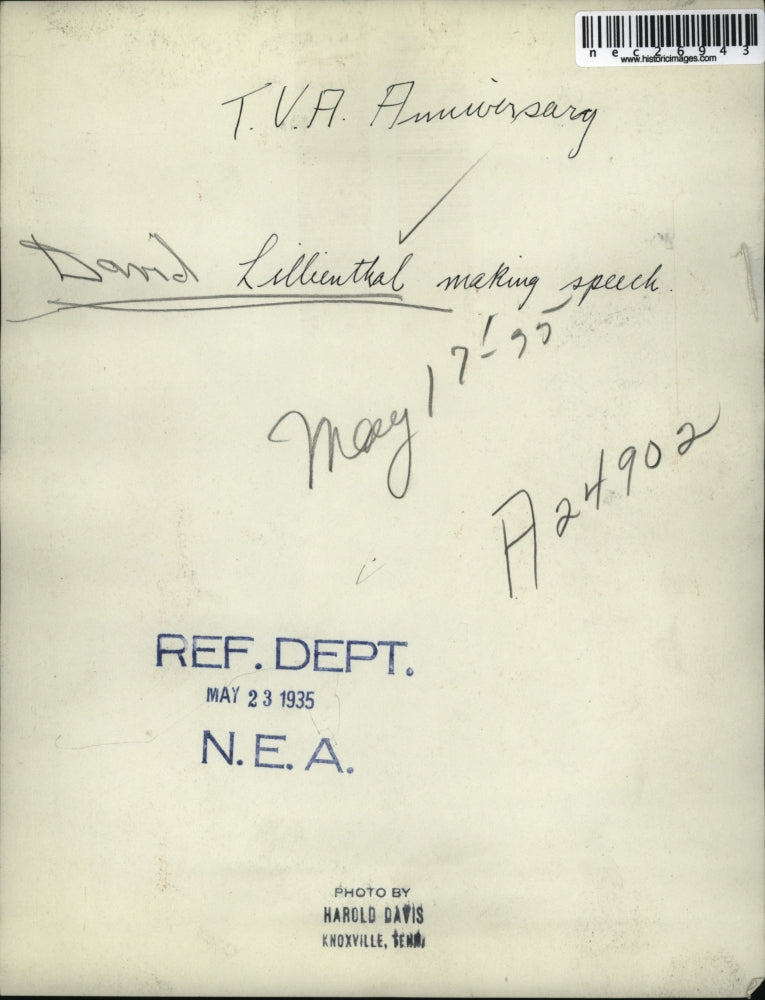 nec26943
www.historicimages.com
T.V.A. Anniversary
David Lillienthal making speech.
May 17-35
A24902
REF. DEPT.
MAY 23 1935
N.E.A.
PHOTO BY
HAROLD DAVIS
KNOXVILLE, TENN.